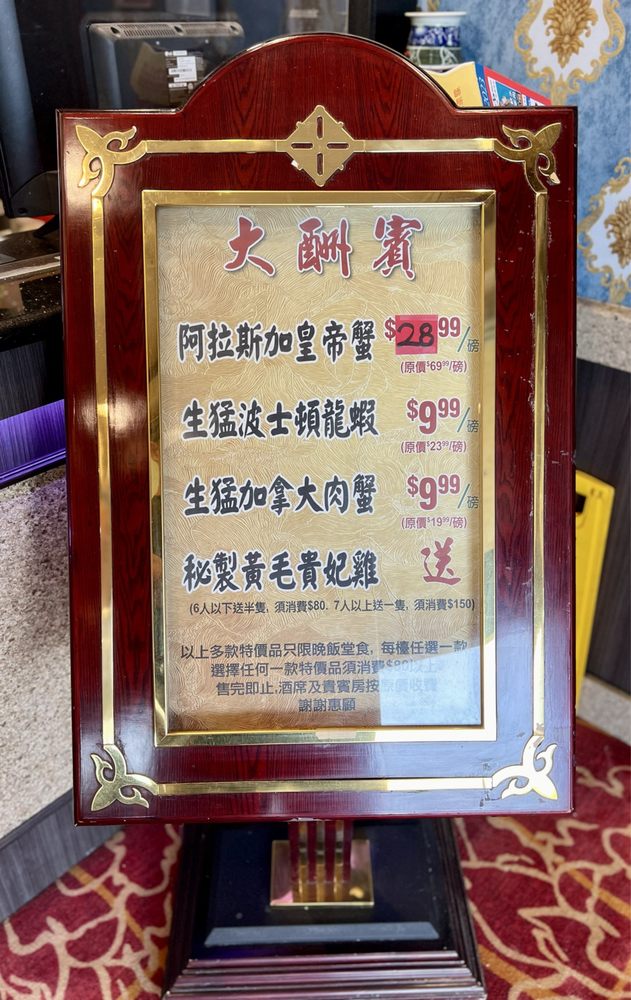 大酬賓
阿拉斯加皇帝蟹 $28.99/磅
(原價$69.99/磅)
生猛波士頓龍蝦 $9.99/磅
(原價$23.99/磅)
生猛加拿大肉蟹 $9.99/磅
(原價$19.99/磅)
秘製黃毛貴妃雞 送
(6人以下送半隻, 須消費$80. 7人以上送一隻, 須消費$150)
以上多款特價品只限晚飯堂食, 每檯任選一款
選擇任何一款特價品須消費$80以上
售完即止,酒席及貴賓房按原價收費
謝謝惠顧